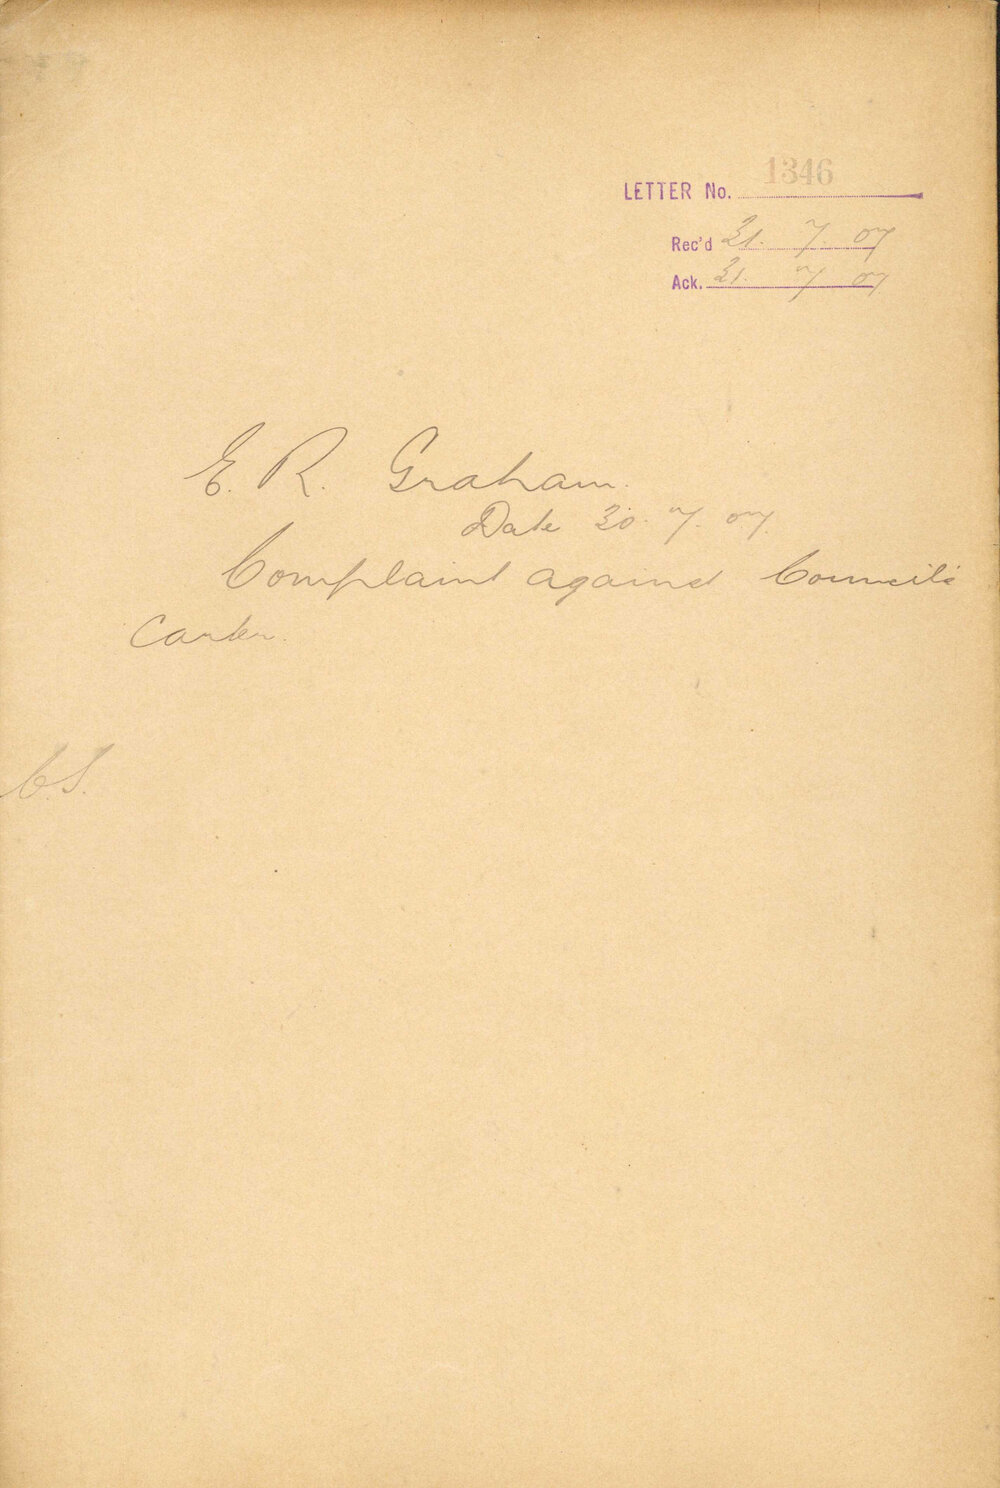 LETTER No. 1346
Rec'd 31. 7 07
Ack. 31. 7 07
E. R. Graham.
Date 30. 7. 07.
Complaint against Council's
Carter.
C.S.